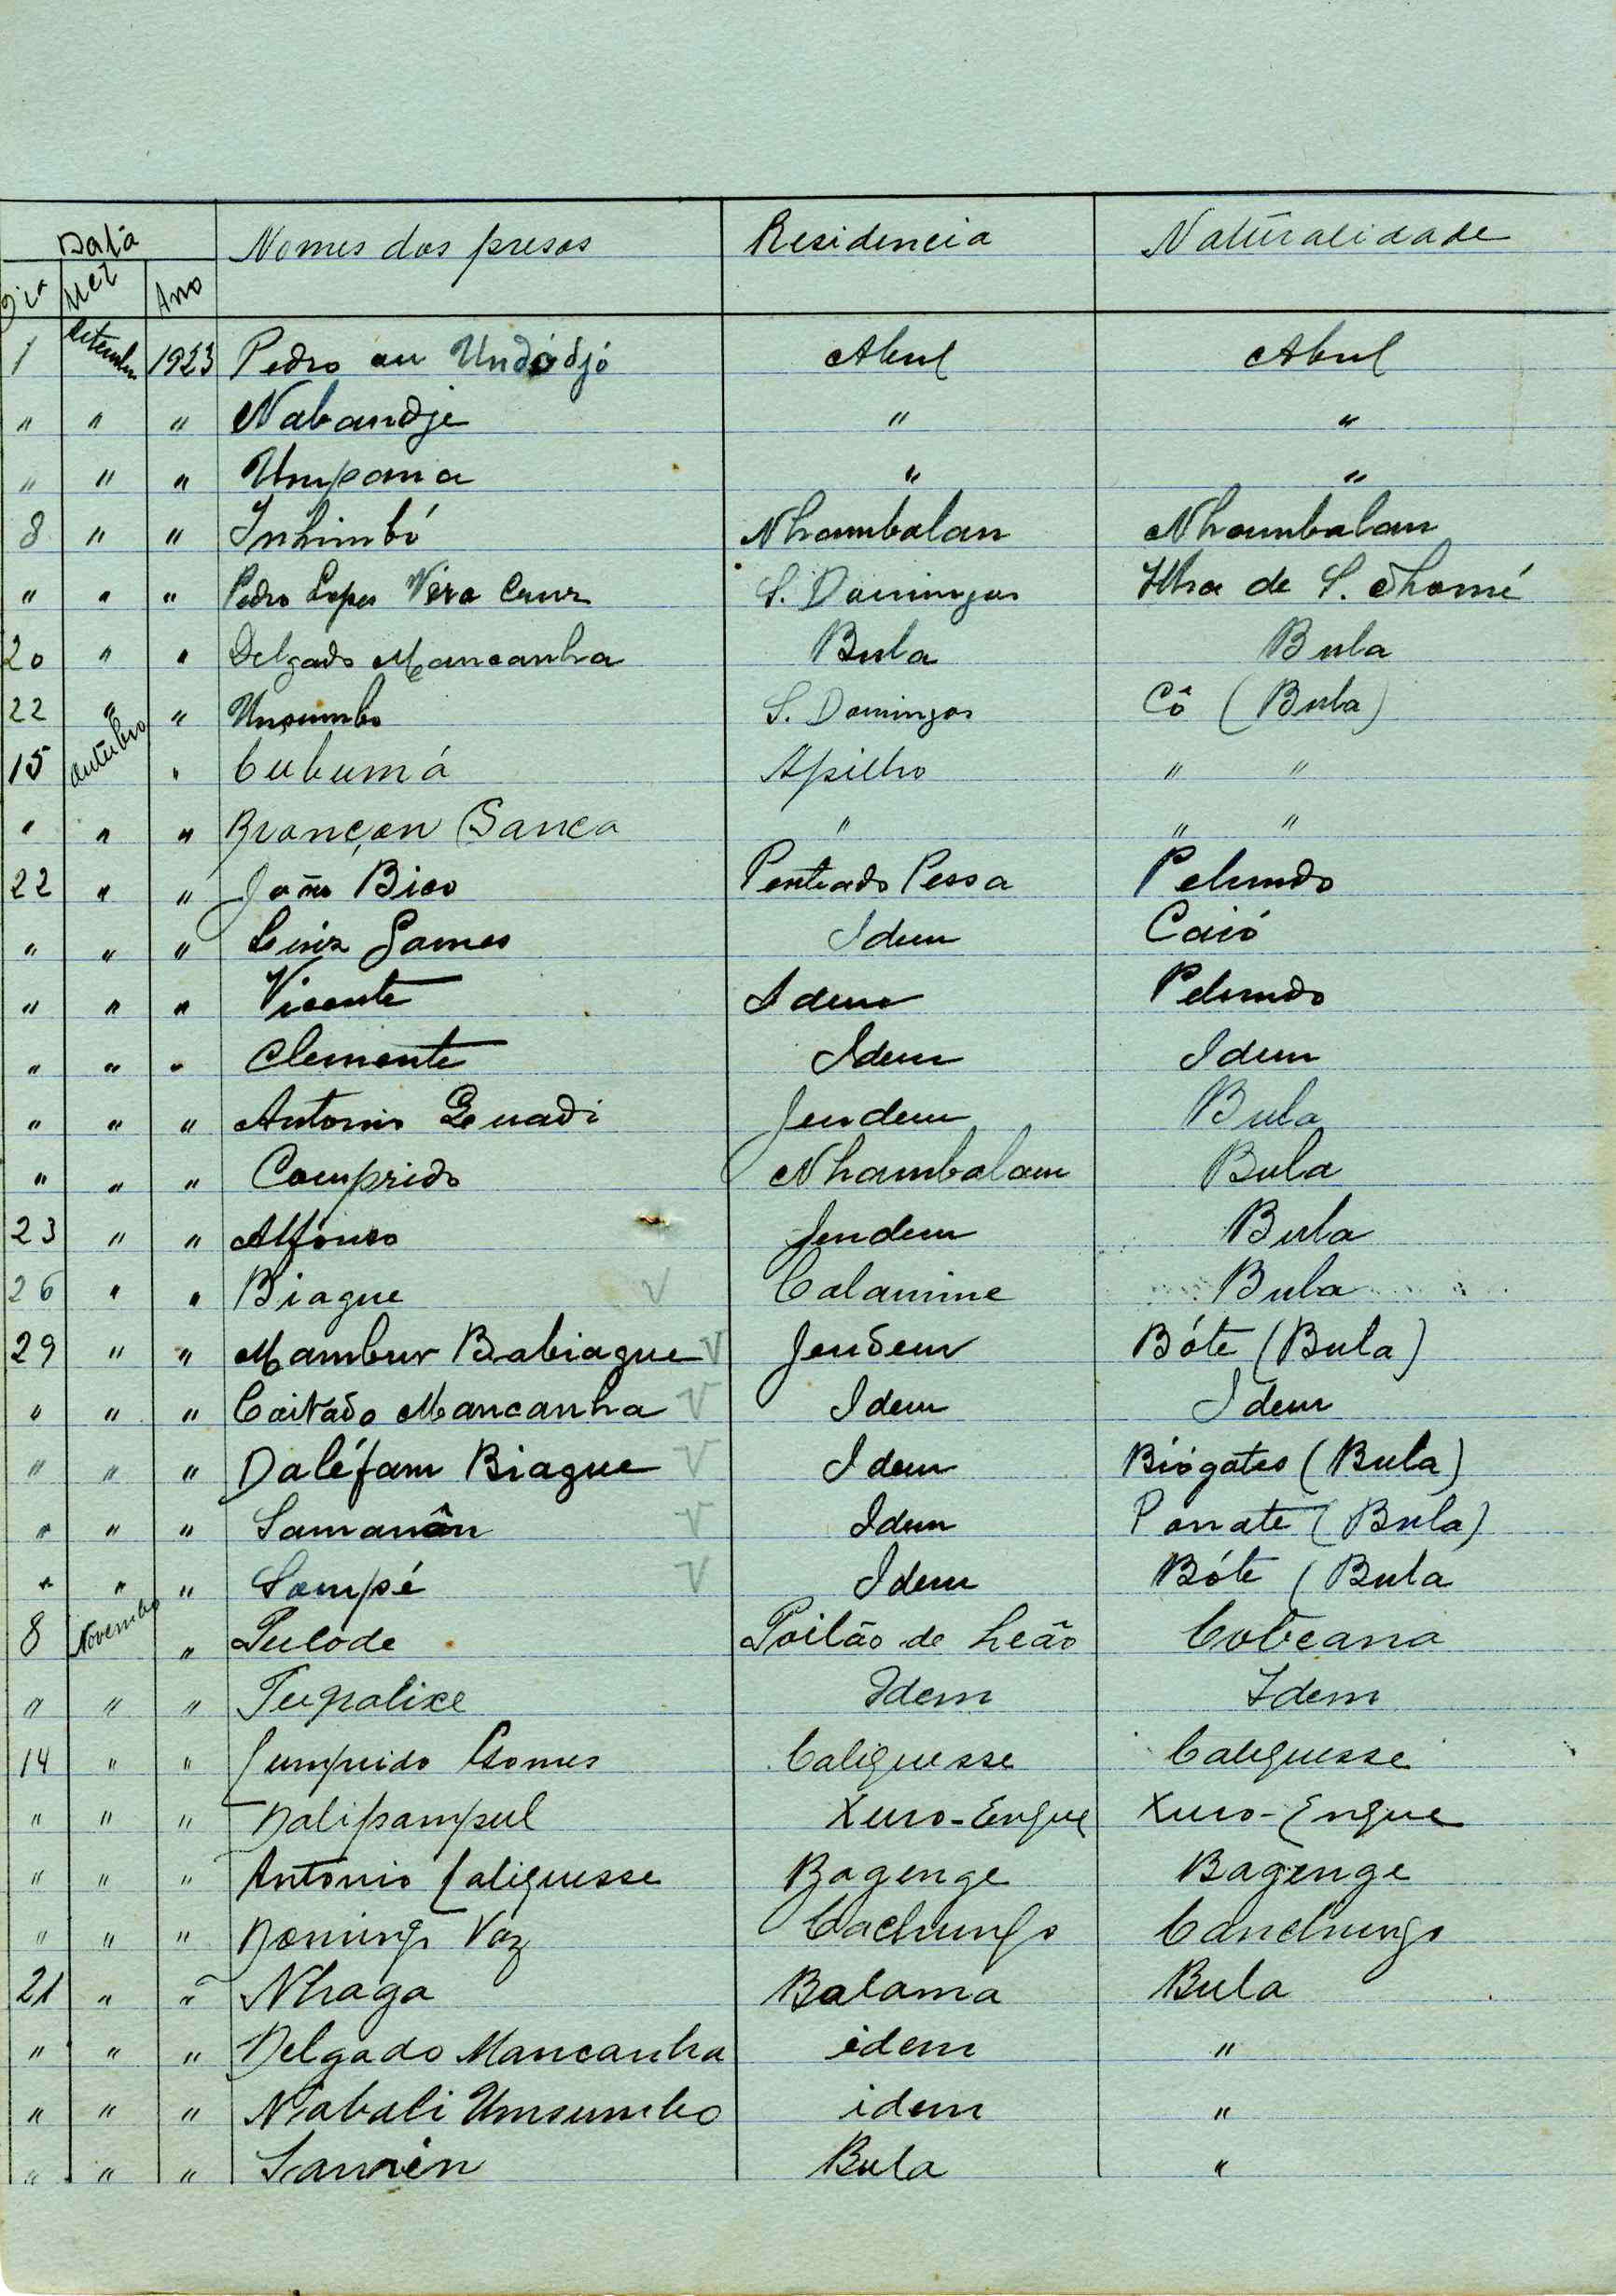 Data Nomes dos presos Residencia Naturalidade
Dia Mez Ano
1 Setembro 1923 Pedro ou Undódjó Abul Abul
" " " Nabandje " "
" " " Umpana " "
8 " " Inhimbó Nhambalan Nhambalan
" " " Pedro Lopes Vera Cruz S. Domingos Ilha de S. Thomé
20 " " Delgado Mancanha Bula Bula
22 " " Unsumbo S. Domingos Cô (Bula)
15 Outubro " Cubumá Apilho " "
" " " Brançan Sanca " " "
22 " " João Bico Penteado Pessa Pelundo
" " " Luiz Gomes Idem Caió
" " " Vicente Idem Pelundo
" " " Clemente Idem Idem
" " " Antonio Quadi Jendem Bula
" " " Comprido Nhambalam Bula
23 " " Alfonso Jendem Bula
26 " " Biague V Calamine Bula
29 " " Mambur Babiague V Jendem Bóte (Bula)
" " " Caitado Mancanha V Idem Idem
" " " Daléfam Biague V Idem Biógates (Bula)
" " " Samanân V Idem Panate (Bula)
" " " Sampé V Idem Bóte (Bula
8 Novembro " Pulode Poilão de Leão Cobeana
" " " Tupalixe Idem Idem
14 " " Cumprido Gomes Caliquesse Caliquesse
" " " Dalipampul Xuro-Engue Xuro-Engue
" " " Antonio Caliquesse Bagenge Bagenge
" " " Domingo Vaz Cachungo Canchungo
21 " " Nhaga Balama Bula
" " " Delgado Mancanha idem "
" " " Nabali Umsumbo idem "
" " " Bula "